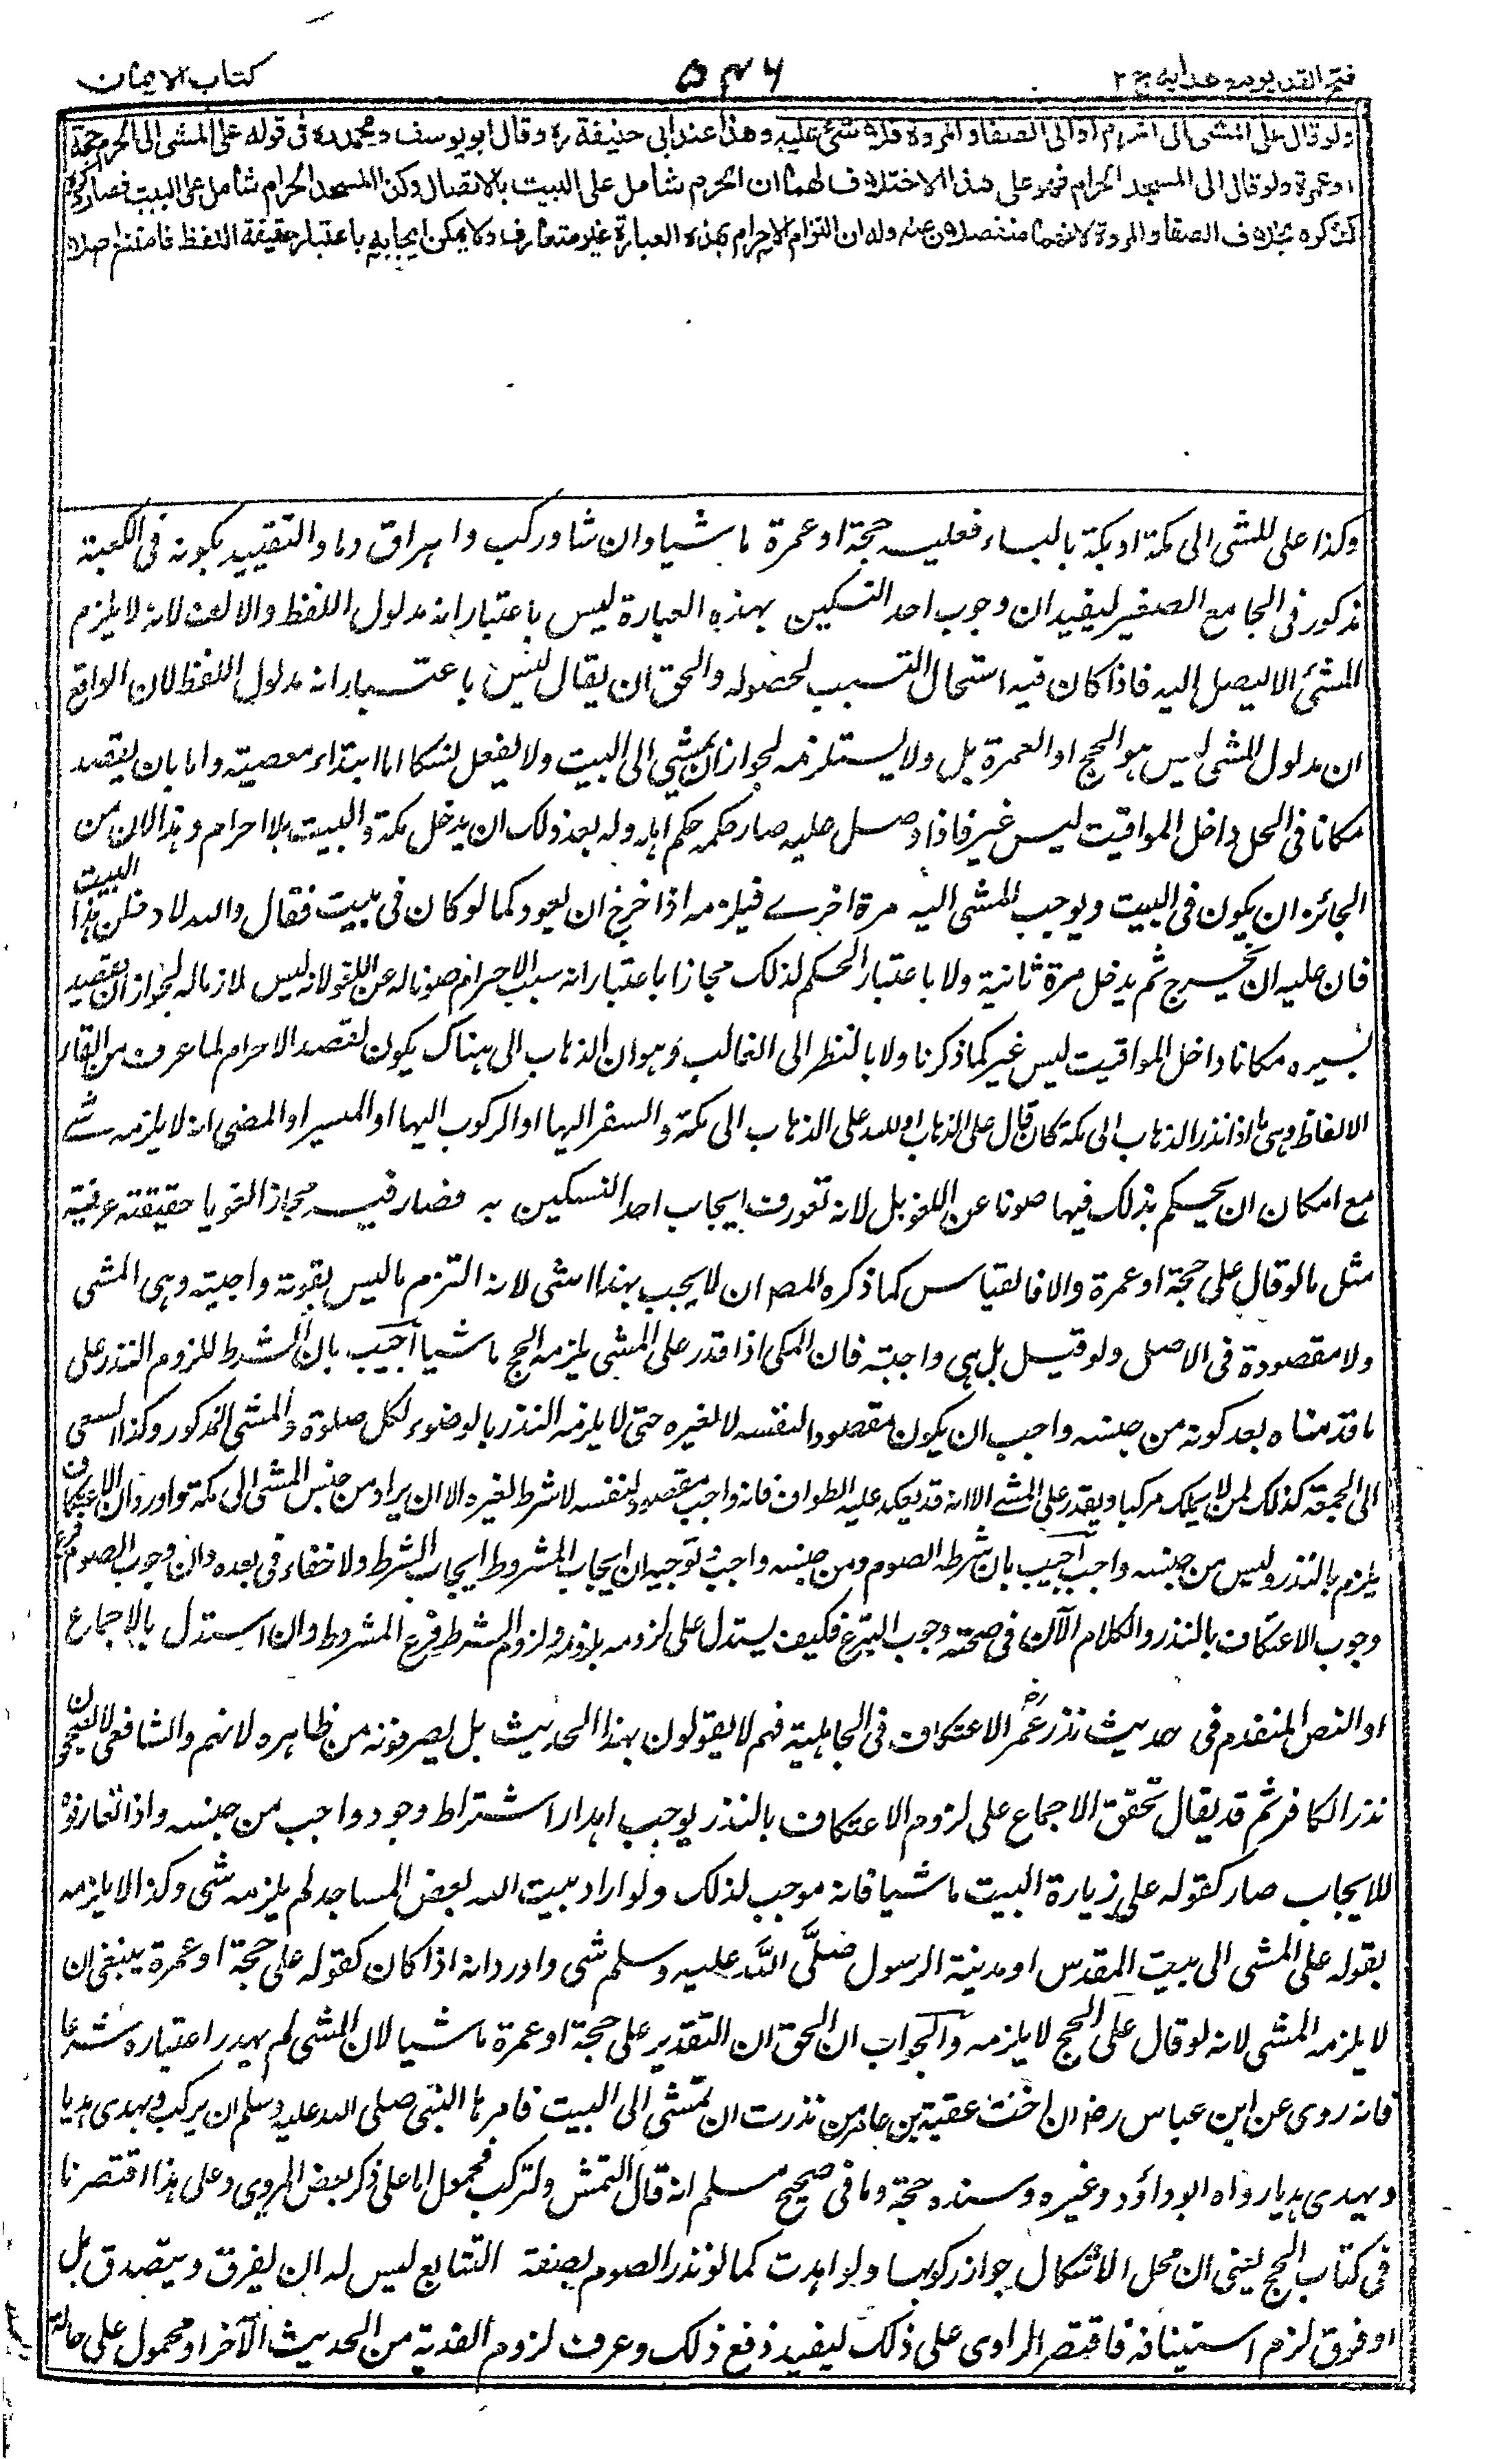 فتح القدير مع هدايه ج ٢
٥٣٦
كتاب الايمان
ولو قال على المشى الى الحرم او الى الصفا والمروة فلا شئ عليه وهذا عند ابى حنيفة ره وقال ابو يوسف ومحمد ره فى قوله على المشى الى الحرم حجة
او عمرة ولو قال الى المسجد الحرام فهو على هذا الاختلاف لهما ان الحرم شامل على البيت بالاتصال وكذا المسجد الحرام شامل على البيت فصار ذكره
كذكره بخلاف الصفا والمروة لانهما منفصلان عنه وله ان التزام الاحرام بهذه العبارة غير متعارف ولا يمكن ايجابه باعتبار حقيقة اللفظ فامتنع اصلا
وكذا على المشى الى مكة او بكة بالباء فعليه حجة او عمرة ماشيا وان شاء ركب واهراق دما والتقييد بكونه فى الكعبة
مذكور فى الجامع الصغير ليفيد ان وجوب احد النسكين بهذه العبارة ليس باعتبار انه مدلول اللفظ والا لغت لانه لا يلزم
المشئ الا ليصل اليه فاذا كان فيه استحال التسبب لحصوله والحق ان يقال ليس باعتبار انه مدلول اللفظ لان الواقع
ان مدلول المشى ليس هو الحج او العمرة بل ولا يستلزمه لجواز ان يمشى الى البيت ولا يفعل نسكا اما ابتداء معصية واما بان يقصد
مكانا فى الحل داخل المواقيت ليس غير فاذا وصل عليه صار حكمه حكم اهله وله بعد ذلك ان يدخل مكة والبيت بلا احرام وهذا لان من
الجائز ان يكون فى البيت ويوجب المشى اليه مرة اخرے فيلزمه اذا خرج ان يعود كما لو كان فى بيت فقال والله لادخلن هذا البيت
فان عليه ان يخرج ثم يدخل مرة ثانية ولا باعتبار الحكم لذلك مجازا باعتبار انه سبب الاحرام صونا له عن اللغو لانه ليس لازما له لجواز ان يقصد
بسيره مكانا داخل المواقيت ليس غير كما ذكرنا ولا بالنظر الى الغالب وهو ان الذهاب الى هناك يكون لقصد الاحرام لما عرف من القاء
الالفاظ وهى ما اذا نذر الذهاب الى مكة كان قال على الذهاب او لله على الذهاب الى مكة والسفر اليها او الركوب اليها او المسير او المضى انه لا يلزمه شے
مع امكان ان يحكم بذلك فيها صونا عن اللغو بل لانه تعورف ايجاب احد النسكين به فصار فيه مجازا لغويا حقيقة عرفية
مثل ما لو قال على حجة او عمرة والا فالقياس كما ذكره المصر ان لا يجب بهذا شى لانه التزم ما ليس بقربة واجبة وهى المشى
ولا مقصودة فى الاصل ولو قيل بل هى واجبة فان المكى اذا قدر على المشى يلزمه الحج ماشيا اجيب بان الشرط للزوم النذر على
ما قدمناه بعد كونه من جنسه واجب ان يكون مقصودا لنفسه لا لغيره حتى لا يلزمه النذر بالوضوء لكل صلوة والمشى المذكور وكذا السعى
الى الجمعة كذلك لمن لا يملك مركبا ويقدر على المشے الا انه قد يعكر عليه الطواف فانه واجب مقصود لنفسه لا شرط لغيره الا ان يراد من جنس المشى الى مكة واورد ان الاعتكاف
يلزم بالنذر وليس من جنسه واجب اجيب بان شرطه الصوم ومن جنسه واجب وتوجيه ان ايجاب المشروط ايجاب الشرط ولا خفاء فى بعده فان وجوب الصوم فرع
وجوب الاعتكاف بالنذر والكلام الآن فى صحة وجوب المتبرع فكيف يستدل على لزومه بلزومه ولزوم الشرط فرع المشروط وان استدل بالاجماع
او النص المتقدم فى حديث نذر عمر الاعتكاف فى الجاهلية فهم لا يقولون بهذا الحديث بل يصرفونه من ظاهره لانهم والشافعى لا يصححون
نذر الكافر ثم قد يقال تحقق الاجماع على لزوم الاعتكاف بالنذر يوجب اهدار اشتراط وجود واجب من جنسه واذا تعارفوه
للايجاب صار كقوله على زيارة البيت ماشيا فانه موجب لذلك ولو اراد ببيت الله بعض المساجد لم يلزمه شى وكذا لا يلزمه
بقوله على المشى الى بيت المقدس او مدينة الرسول صلى الله عليه وسلم شى واورد انه اذا كان كقوله على حجة او عمرة ينبغى ان
لا يلزمه المشى لانه لو قال على الحج لا يلزمه والجواب ان الحق ان التقدير على حجة او عمرة ماشيا لان المشى لم يهدر اعتباره شرعا
فانه روى عن ابن عباس رض ان اخت عقبة بن عامر نذرت ان تمشى الى البيت فامرها النبى صلى الله عليه وسلم ان تركب وتهدى هديا
وتهدى هديا رواه ابو داؤد وغيره وسنده حجة وما فى صحيح مسلم انه قال لتمش ولتركب فمحمول اما على ذكر بعض المروى وعلى هذا اقتصرنا
فى كتاب الحج يعنى ان محل الاشكال جواز ركوبها ولو اهدت كما لو نذر الصوم بصفة التتابع ليس له ان يفرق ويتصدق بل
او فرق لزم استينافه فاقتصر الراوى على ذلك ليفيد دفع ذلك وعرف لزوم الفدية من الحديث الآخر او محمول على حالة